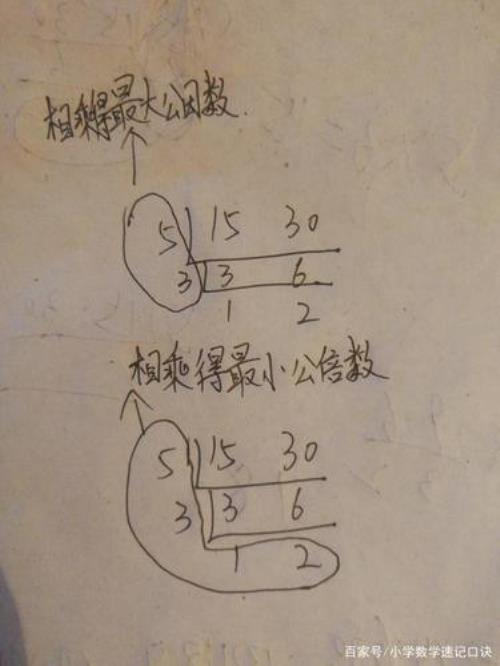 相乘得最大公因数.
5 15 30
3 3 6
1 2
相乘得最小公倍数
5 15 30
3 3 6
1 2
百家号/小学数学速记口诀